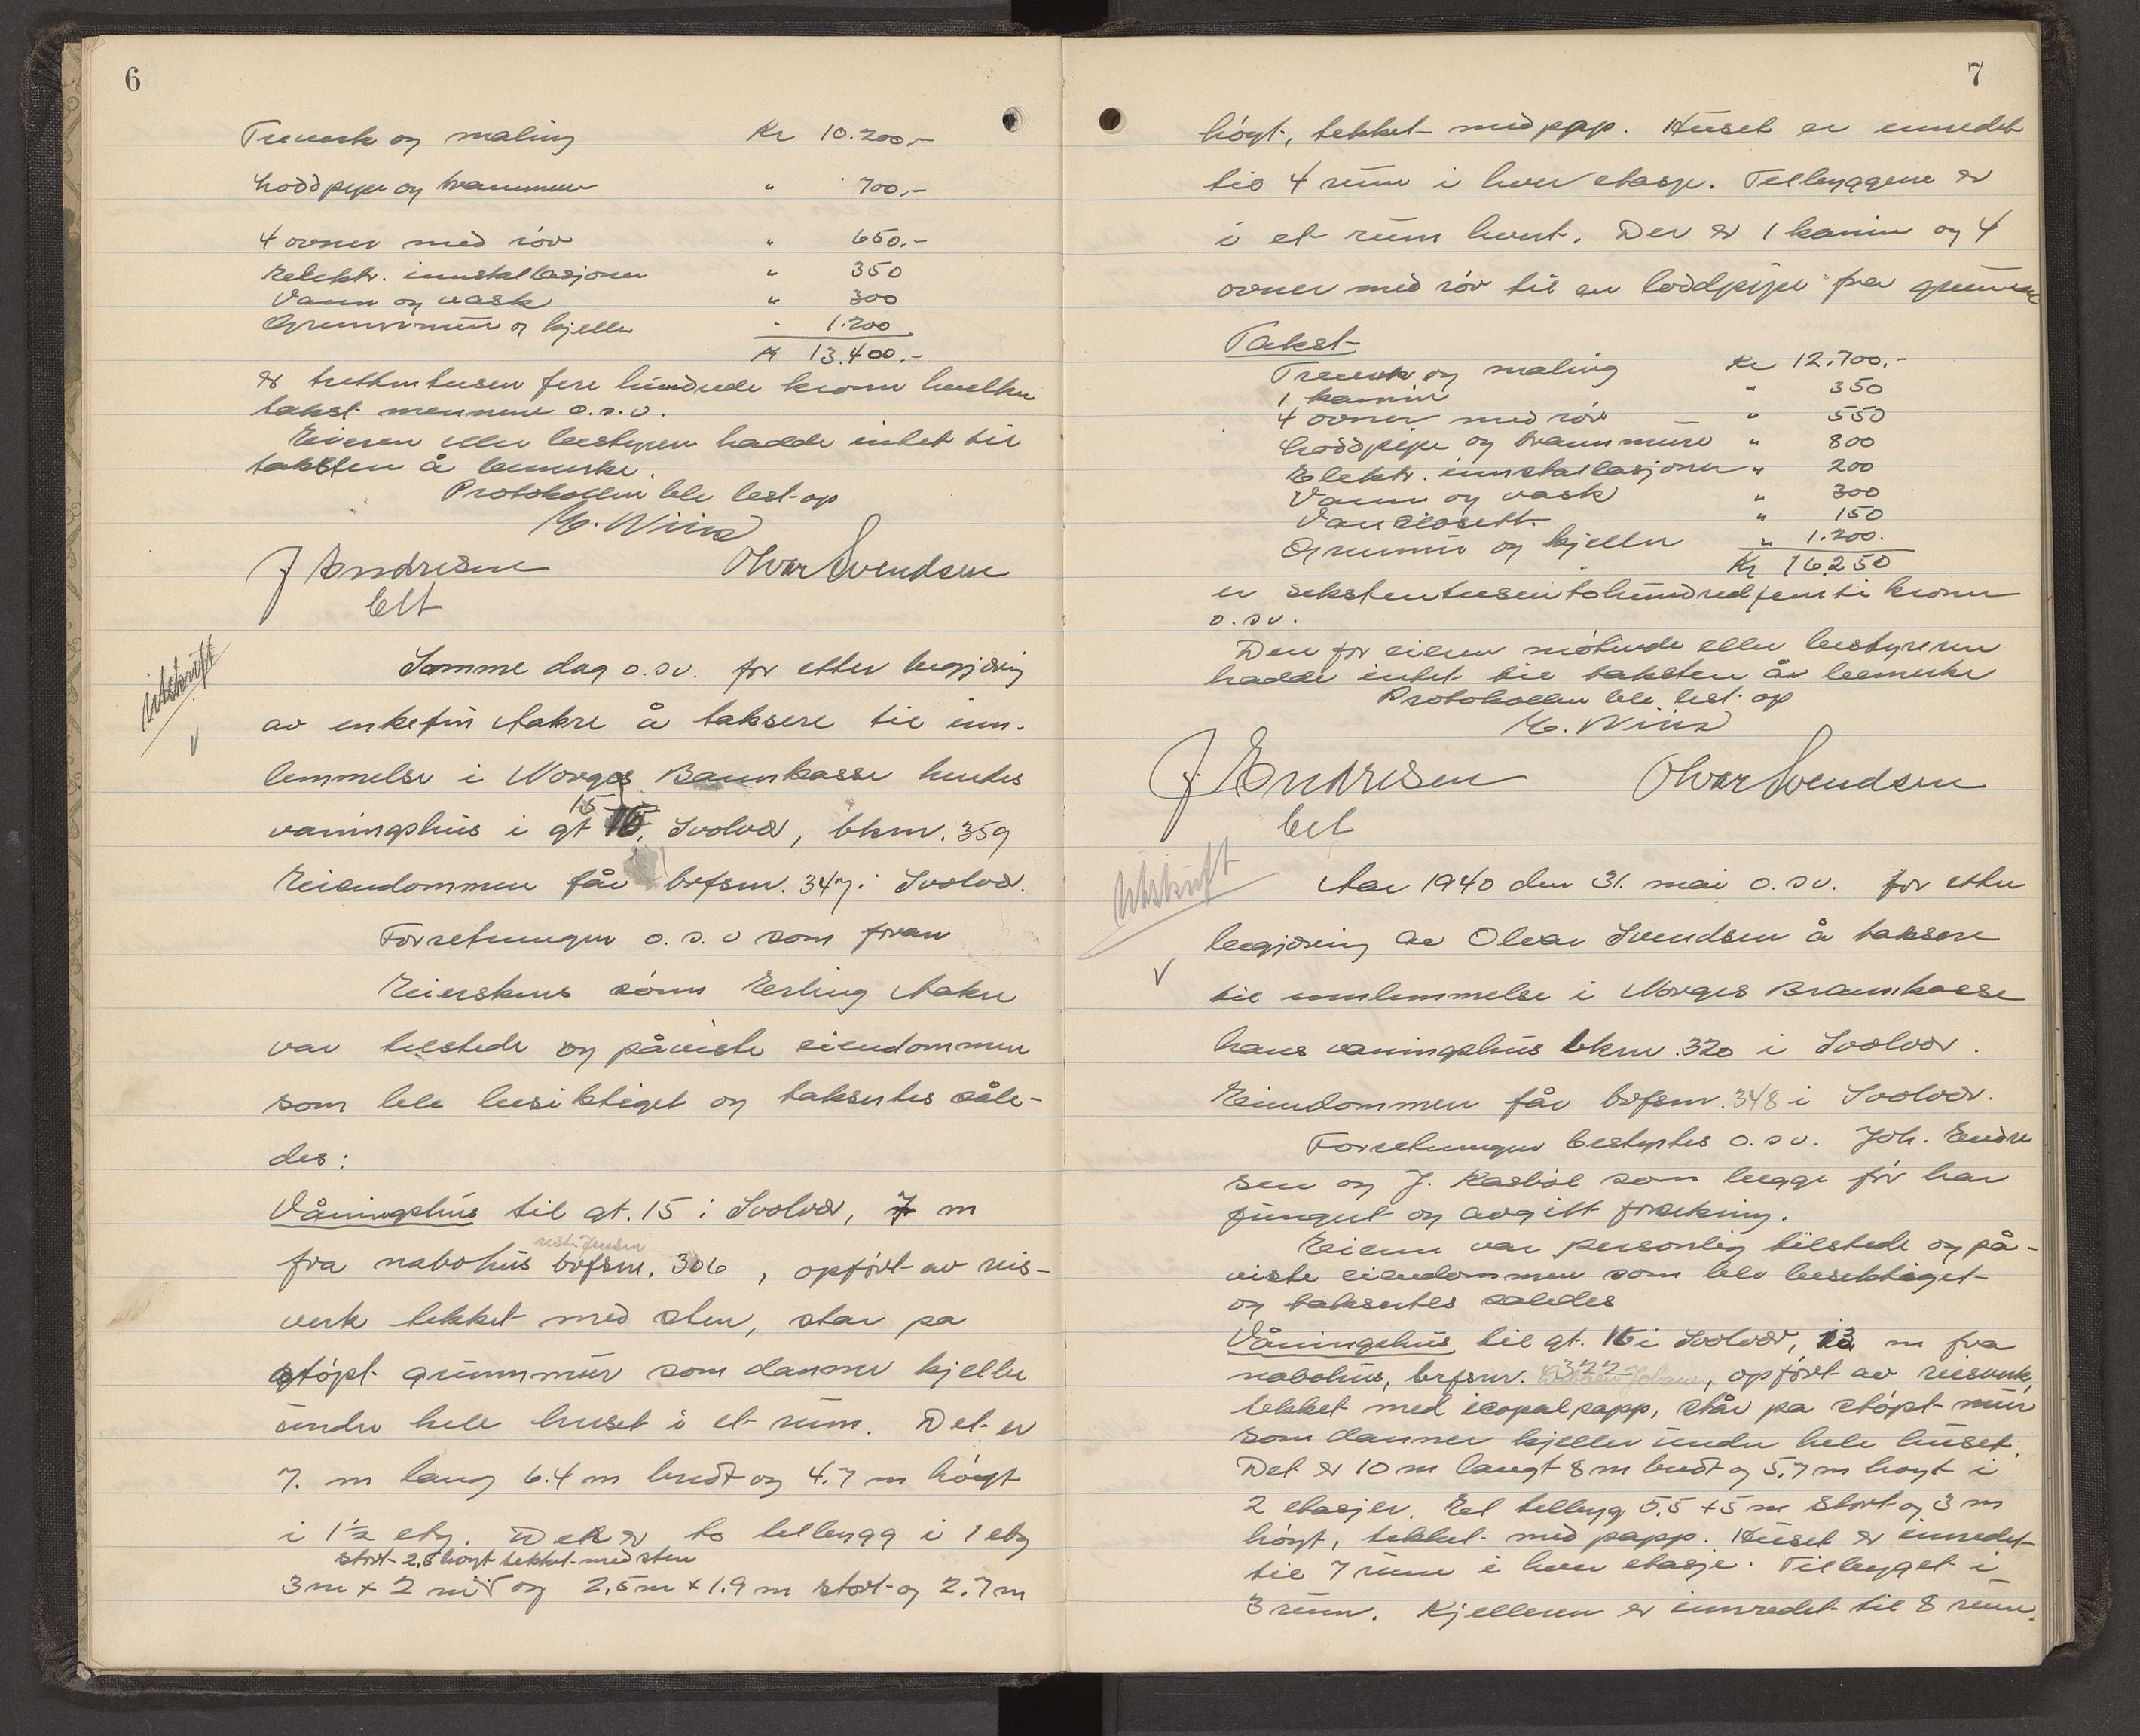 6
Treverk og maling Kr 10.200,-
Loddpipe og brannmur " 700,-
4 ovner med rør " 650.-
Elektr. innstallasjoner " 350
Vann og vask " 300
Grunnmur og kjeller " 1.200
Kr 13.400.-
er trettentusen fire hundrede kroner hvilken
takst mennene o.s.v.
Eieren eller bestyren hadde intet til
taksten å bemerke.
Protokollen ble lest op
E. Wiik
J Endresen Olvar Svendsen
Elt
utskrift
Samme dag o.sv. for etter begjæring
av enkefru Aakre å taksere til inn-
lemmelse i Norges Brannkasse hendes
vaningshus i gt 15, Svolvær, bknr. 359
Eiendommen får brfsnr. 347 i Svolvær.
Forretningen o.s.v som foran
Eierskens sønn Erling Aakre
var tilstede og påviste eiendommen
som ble besiktiget og taksertes såle-
des:
Våningshus til gt. 15 i Svolvær, 7 m
fra nabohus brfsnr. 306, opført av reis-
verk tekket med sten, star pa
støpt grunnmur som danner kjeller
under hele huset i et rum. Det er
7. m lang 6.4 m bredt og 4.7 m høyt
i 1½ etg. Det er to tilbygg i 1 etg
stort 2,8 høyt tekket med sten
3 m x 2 m og 2,5 m x 1.9 m stort og 2.7 m
7
høyt, tekket med papp. Huset er innredet
til 4 rum i hver etasje. Tilbyggene er
i et rum hvert. Der er 1 kamin og 4
ovner med rør til en loddpipe fra grunnen
Takst
Treverk og maling Kr 12.700.-
1 kamin " 350
4 ovner med rør " 550
Loddpipe og brannmure " 800
Elektr. innstallasjoner " 200
Vann og vask " 300
Vanclosett " 150
Grunnmur og kjeller " 1.200.
Kr 16.250
er sekstentusentohundredfemti kroner
o.sv.
Den for eieren møtende eller bestyreren
hadde intet til taksten å bemerke
Protokollen ble lest op
E. Wiik
J. Endresen Olvar Svendsen
Elt
Utskrift
Aar 1940 den 31. mai o.sv. for etter
begjæring av Olvar Svendsen å taksere
til innlemmelse i Norges Brannkasse
hans vaningshus bknr. 320 i Svolvær.
Eiendommen får brfsnr. 348 i Svolvær.
Forretningen bestyrtes o.sv. Joh. Endre
sen og J. Kasbøl som begge før har
fungert og avgitt forsikring.
Eieren var personlig tilstede og på-
viste eiendommen som blev besiktiget
og taksertes saledes
Våningshus til gt. 16 i Svolvær, 13 m fra
nabohus, brfsnr. 322, opført av reisverk,
tekket med icopalpapp, står pa støpt mur
som danner kjeller under hele huset.
Det er 10 m langt 8 m bredt og 5,7 m høyt i
2 etasjer. Et tilbygg 5.5 x 5 m stort og 3 m
høyt, tekket med papp. Huset er innredet
til 7 rum i hver etasje. Tilbygget i
3 rum. Kjelleren er innredet til 8 rum.